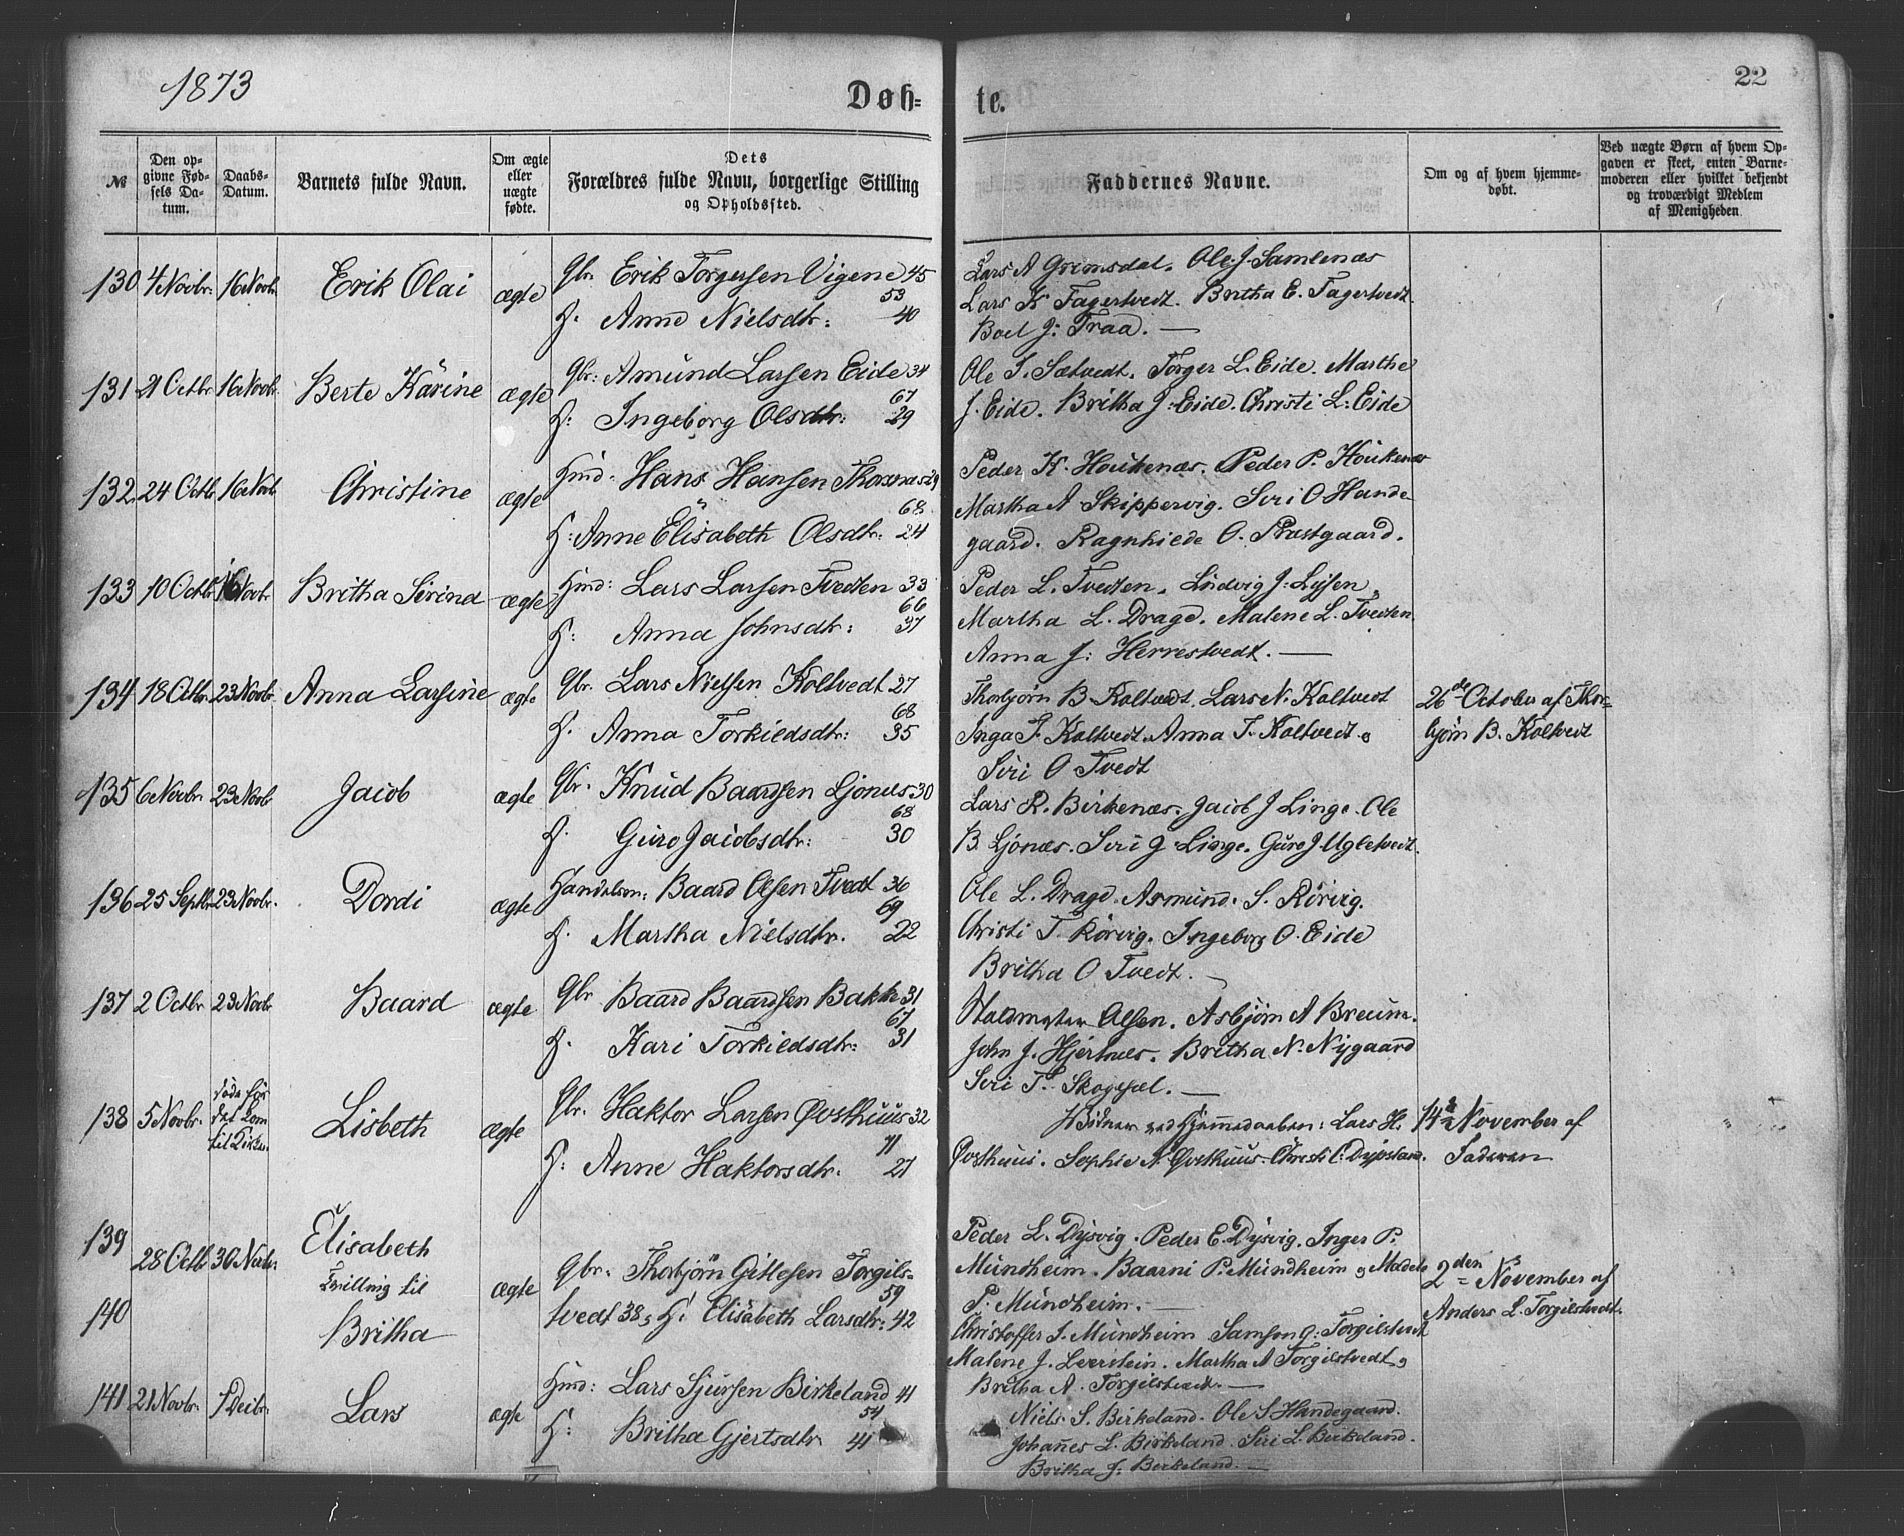 1873
22
Døb=
te.
№
Den op=
givne Fød=
sels Da=
tum.
Daabs=
Datum.
Barnets fulde Navn.
Om ægte
eller
uægte
fødte.
Dets
Forældres fulde Navn, borgerlige Stilling
og Opholdssted.
Faddernes Navne.
Om og af hvem hjemme=
døbt.
Ved uægte Børn af hvem Op=
gaven er skeet, enten Barne=
moderen eller hvilket bekjendt
og troværdigt Medlem
af Menigheden
130 4 Novbr. 16 Novbr. Erik Olai ægte Gbr. Erik Torgersen Vigene 45
53
H. Anna Nielsdtr: 40
Lars A Grimsdal. Ole J. Samlenæs
Lars K Fagertvedt. Britha E. Fagertvedt.
Boel J: Traa. —
131 21 Octbr. 16 Novbr. Berte Karine ægte Gbr: Amund Larsen Eide 34
67
H: Ingeborg Olsdtr: 29
Ole J. Sætvedt. Torger L. Eide. Marthe
J. Eide. Britha J: Eide. Christi L: Eide
132 24 Octbr. 16 Novbr. Christine ægte Hmd: Hans Hansen Thorsnæs 29
68
H: Anne Elisabeth Olsdtr: 24
Peder K. Houkenæs. Peder P. Houkenæs
Martha A Skippervig. Siri O Hande
gaard. Ragnhilde O. Prestgaard.
133 10 Octbr. 16 Novbr. Britha Sirina ægte Hmd: Lars Larsen Tvedten 33
66
H: Anna Johnsdtr: 37
Peder L. Tvedten. Ludvig J: Lysen,
Martha L. Drage. Malene L. Tvedten
Anna J: Herrestvedt. —
134 18 Octbr. 23 Novbr. Anna Larsine ægte Gbr. Lars Nielsen Koltvedt 27
68
H. Anna Torkildsdtr: 35
Thorbjørn B Koltvedt. Lars N. Koltvedt
Inga T. Koltvedt. Anna T. Koltvedt. o
Siri O Tvedt
26de October af Thor=
bjørn B. Koltvedt
135 6 Novbr. 23 Novbr Jacob ægte Gbr. Knud Baardsen Ljones 30
68
H. Guro Jacobsdtr: 30
Lars R. Birkenæs. Jacob J Linge. Ole
B. Ljonæs. Siri J Linge. Guro J Ugletvedt.
136 25 Septbr 23 Novbr. Dordi ægte Handelsm: Baard Olsen Tvedt 36
69
H. Martha Nielsdtr. 22
Ole L. Drage. Asmund. S. Rörvig.
Christi T. Rörvig. Ingeborg O. Eide
Britha O Tvedt. —
137 2 Octbr 23 Novbr Baard ægte Gbr Baard Baardsen Bakke 31
67
H. Kari Torkildsdtr: 31
Olsen. Asbjörn A Breum.
John J. Hjertnes. Britha N. Nygaard
Siri T. Skogesæl. —
138 5 Novbr. til Kirken Lisbeth ægte Gbr. Haktor Larsen Østhuus 32
71
H: Anne Haktorsdtr. 27
Vidner ved Hjemmedaaben: Lars H.
Østhuus. Sophie N. Østhuus. Christi C. Dysland.
14de November af
Faderen
139
28 Octbr 30 Novbr. Elisabeth
Tvilling til
140
Britha
ægte Gbr. Thorbjörn Gitlesen Torgils=
59
tvedt 38, H. Elisabeth Larsdtr: 42
Peder L. Dysvig. Peder E. Dysvig. Inger P.
Mundheim. Baarni P. Mundheim o Madele
P. Mundheim. —
Christoffer J. Mundheim Samson G: Torgilstvedt
Malene J. Leerstein. Martha A Torgilstvedt o
Britha A. Torgilstvedt. —
2den November af
Anders L. Torgilstvedt.
141 21 Novbr. 1 Decbr. Lars ægte Hmd: Lars Sjursen Birkeland 41
54
H: Britha Gjertsdtr 41
Niels S. Birkeland. Ole S Handegaard.
Johannes L. Birkeland. Siri L. Birkeland.
Britha J: Birkeland. —